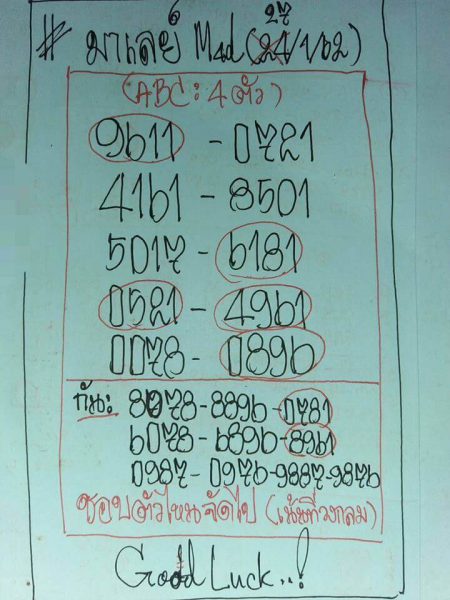 # มาเลย์ M4d (27/1/62)
(ABC: 4 ตัว)
9611 - 0721
4161 - 8501
5017 - 6181
0521 - 4961
0078 - 0896
กัน: 8078 - 8896 - 0781
6078 - 6896 - 8961
0987 - 0976 - 9887 - 9876
ชอบตัวไหนจัดไป (เน้นที่วงกลม)
Good Luck..!